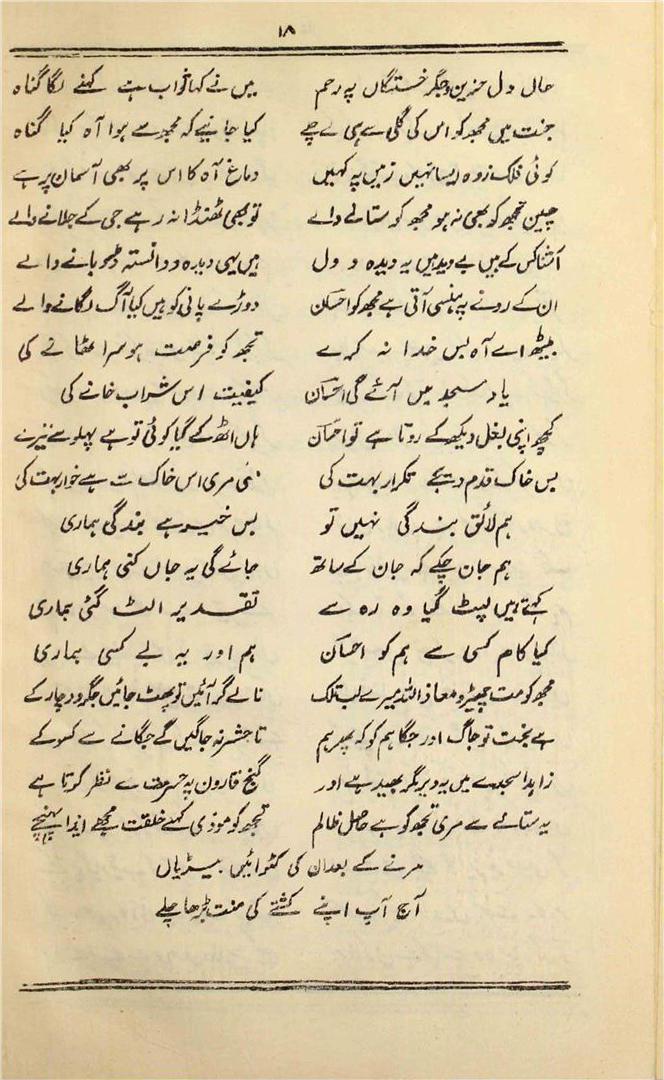 ۱۸
حال دل حزین و جگر خستگاں پہ رحم میں نے کہا ثواب ہے کہنے لگا گناہ
جنت میں مجھ کو اس کی گلی سے ہی لے چلے کیا جانیے کہ مجھ سے ہوا آہ کیا گناہ
کوئی فلک زدہ ایسا نہیں زمیں پہ کہیں دماغ آہ کا اس پر بھی آسمان پر ہے
چین تجھ کو بھی نہ ہو مجھ کو ستانے والے تو بھی ٹھنڈا نہ رہے جی کے جلانے والے
آشنا کس کے ہیں بے دید ہیں یہ دیدہ و دل ہیں یہی دیدہ و دانستہ ڈوبانے والے
ان کے رونے پہ ہنسی آتی ہے مجھ کو احسن دوڑے پانی کو ہیں کیا آگ لگانے والے
بیٹھ اے آہ بس خدا نہ کرے تجھ کو فرصت ہو سر اٹھانے کی
یاد مسجد میں آئے گی احسان کیفیت اس شراب خانے کی
کچھ اپنی بغل دیکھ کے روتا ہے تو احسان ہاں اٹھ کے گیا کوئی تو ہے پہلو سے تیرے
بس خاک قدم دیجے تکرار بہت کی مری اس خاک سے ہے خوار بہت کی
ہم لائق بندگی نہیں تو بس خیر ہے بندگی ہماری
ہم جان چکے کہ جان کے ساتھ جائے گی یہ جاں کنی ہماری
کہتے ہیں لپٹ گیا وہ رہ سے تقدیر الٹ گئی ہماری
کیا کام کسی سے ہم کو احسان ہم اور یہ بے کسی ہماری
مجھ کو مت چھیڑو معاذ اللہ میرے لب تلک نالے گر آئیں تو پھٹ جائیں جگر دو چار کے
ہے بخت تو جاگ اور جگا ہم کو کہ پھر ہم تا حشر نہ جاگیں گے جگانے سے کسو کے
زاہدا سجدے میں یہ دیر گر بھید ہے اور گنج قارون پہ حسرت سے نظر کرتا ہے
یہ ستائے سے مری تجھ کو ہے حاصل ظالم تجھ کو موذی کہے خلقت مجھے ایذا پہنچے
مرنے کے بعد ان کی کٹوائیں بیڑیاں
آج آپ اپنے کشتے کی منت بڑھا چلے